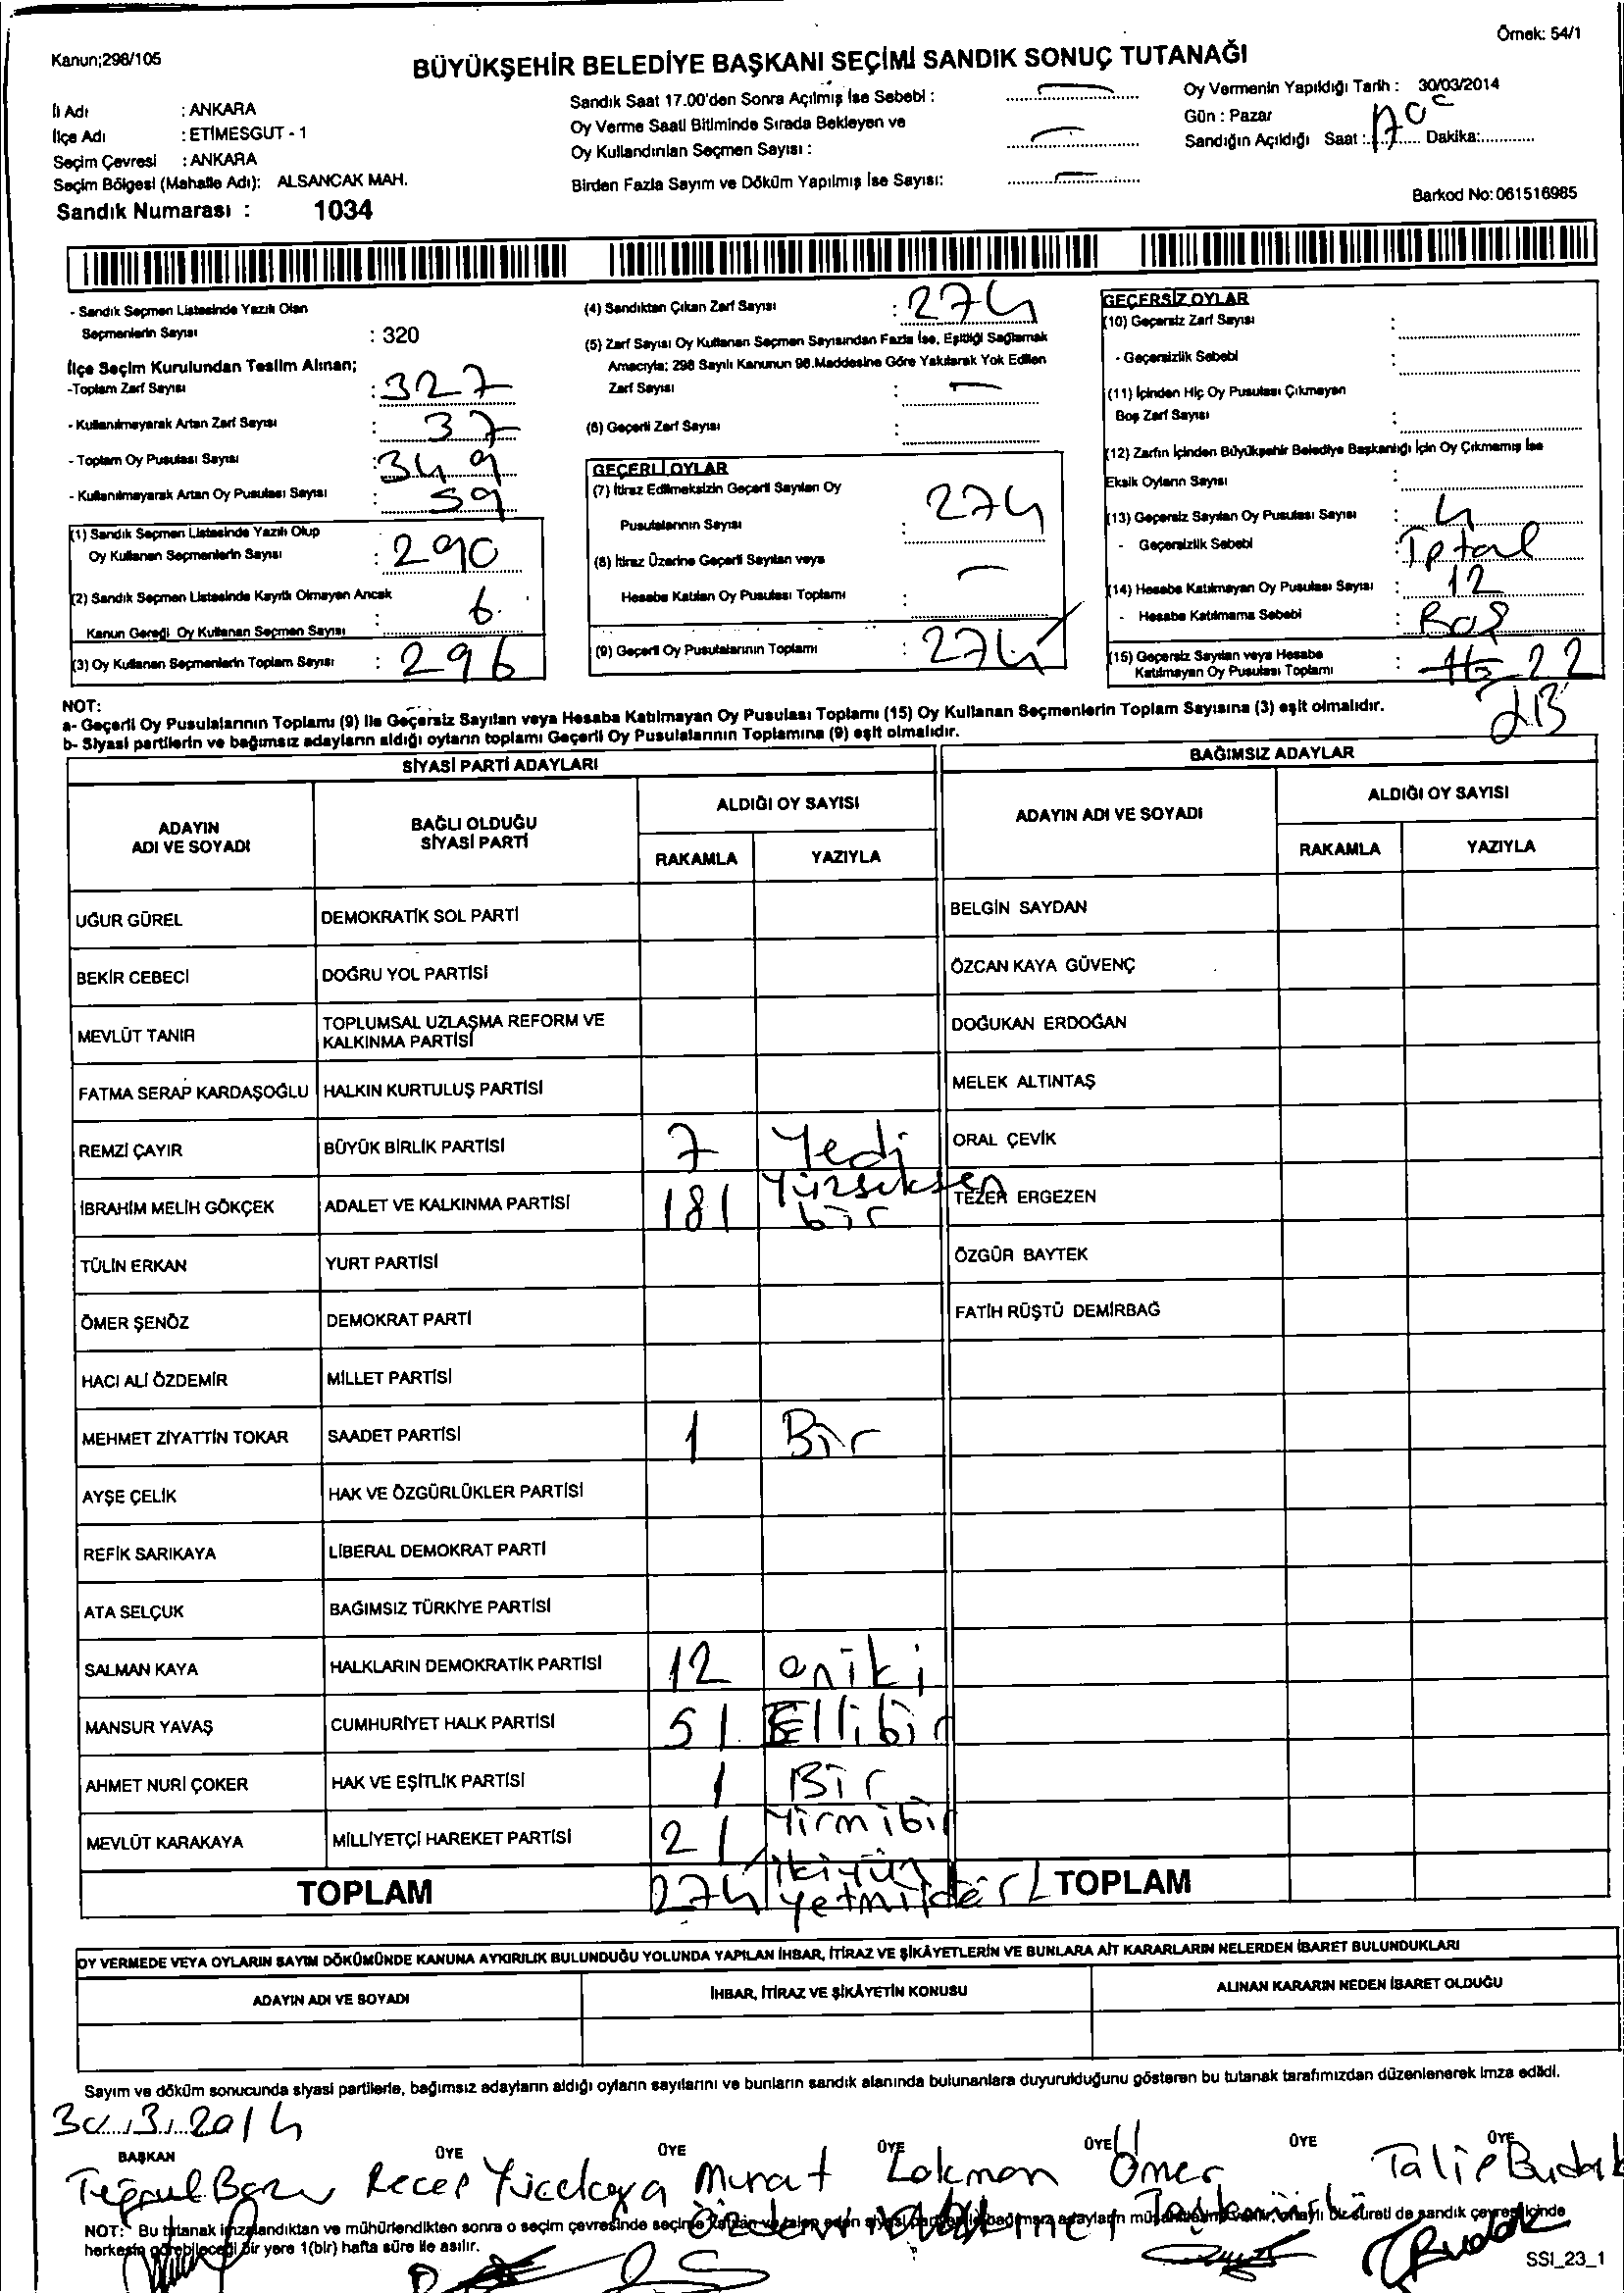 Örnek: 54/1
Kanun;298/105
BÜYÜKŞEHİR BELEDİYE BAŞKANI SEÇİMİ SANDIK SONUÇ TUTANAĞI
İl Adı : ANKARA
İlçe Adı : ETİMESGUT - 1
Seçim Çevresi : ANKARA
Seçim Bölgesi (Mahalle Adı): ALSANCAK MAH.
Sandık Numarası : 1034
Sandık Saat 17.00'den Sonra Açılmış İse Sebebi :
Oy Verme Saati Bitiminde Sırada Bekleyen ve
Oy Kullandırılan Seçmen Sayısı :
Birden Fazla Sayım ve Döküm Yapılmış İse Sayısı:
Oy Vermenin Yapıldığı Tarih : 30/03/2014
Gün : Pazar
Sandığın Açıldığı Saat : Dakika:
Barkod No: 061516985
- Sandık Seçmen Listesinde Yazılı Olan
Seçmenlerin Sayısı : 320
İlçe Seçim Kurulundan Teslim Alınan;
-Toplam Zarf Sayısı : 327
- Kullanılmayarak Artan Zarf Sayısı : 37
- Toplam Oy Pusulası Sayısı : 349
- Kullanılmayarak Artan Oy Pusulası Sayısı : 59
(1) Sandık Seçmen Listesinde Yazılı Olup
Oy Kullanan Seçmenlerin Sayısı : 290
(2) Sandık Seçmen Listesinde Kayıtlı Olmayan Ancak
Kanun Gereği Oy Kullanan Seçmen Sayısı : 6
(3) Oy Kullanan Seçmenlerin Toplam Sayısı : 296
(4) Sandıktan Çıkan Zarf Sayısı : 274
(5) Zarf Sayısı Oy Kullanan Seçmen Sayısından Fazla İse, Eşitliği Sağlamak
Amacıyla; 298 Sayılı Kanunun 98.Maddesine Göre Yakılarak Yok Edilen
Zarf Sayısı : —
(6) Geçerli Zarf Sayısı :
GEÇERLİ OYLAR
(7) İtiraz Edilmeksizin Geçerli Sayılan Oy
Pusulalarının Sayısı : 274
(8) İtiraz Üzerine Geçerli Sayılan veya
Hesaba Katılan Oy Pusulası Toplamı : —
(9) Geçerli Oy Pusulalarının Toplamı : 274
GEÇERSİZ OYLAR
(10) Geçersiz Zarf Sayısı :
- Geçersizlik Sebebi :
(11) İçinden Hiç Oy Pusulası Çıkmayan
Boş Zarf Sayısı :
(12) Zarfın İçinden Büyükşehir Belediye Başkanlığı İçin Oy Çıkmamış İse
Eksik Oyların Sayısı :
(13) Geçersiz Sayılan Oy Pusulası Sayısı : 4
- Geçersizlik Sebebi : İptal
(14) Hesaba Katılmayan Oy Pusulası Sayısı : 12
- Hesaba Katılmama Sebebi : Boş
(15) Geçersiz Sayılan veya Hesaba
Katılmayan Oy Pusulası Toplamı : 22
NOT:
a- Geçerli Oy Pusulalarının Toplamı (9) İle Geçersiz Sayılan veya Hesaba Katılmayan Oy Pusulası Toplamı (15) Oy Kullanan Seçmenlerin Toplam Sayısına (3) eşit olmalıdır.
b- Siyasi partilerin ve bağımsız adayların aldığı oyların toplamı Geçerli Oy Pusulalarının Toplamına (9) eşit olmalıdır.
SİYASİ PARTİ ADAYLARI
BAĞIMSIZ ADAYLAR
ADAYIN
ADI VE SOYADI
BAĞLI OLDUĞU
SİYASİ PARTİ
ALDIĞI OY SAYISI
RAKAMLA YAZIYLA
ADAYIN ADI VE SOYADI
ALDIĞI OY SAYISI
RAKAMLA YAZIYLA
UĞUR GÜREL DEMOKRATİK SOL PARTİ BELGİN SAYDAN
BEKİR CEBECİ DOĞRU YOL PARTİSİ ÖZCAN KAYA GÜVENÇ
MEVLÜT TANIR TOPLUMSAL UZLAŞMA REFORM VE
KALKINMA PARTİSİ DOĞUKAN ERDOĞAN
FATMA SERAP KARDAŞOĞLU HALKIN KURTULUŞ PARTİSİ MELEK ALTINTAŞ
REMZİ ÇAYIR BÜYÜK BİRLİK PARTİSİ 7 Yedi ORAL ÇEVİK
İBRAHİM MELİH GÖKÇEK ADALET VE KALKINMA PARTİSİ 181 Yüzseksen
bir TEZER ERGEZEN
TÜLİN ERKAN YURT PARTİSİ ÖZGÜR BAYTEK
ÖMER ŞENÖZ DEMOKRAT PARTİ FATİH RÜŞTÜ DEMİRBAĞ
HACI ALİ ÖZDEMİR MİLLET PARTİSİ
MEHMET ZİYATTİN TOKAR SAADET PARTİSİ 1 Bir
AYŞE ÇELİK HAK VE ÖZGÜRLÜKLER PARTİSİ
REFİK SARIKAYA LİBERAL DEMOKRAT PARTİ
ATA SELÇUK BAĞIMSIZ TÜRKİYE PARTİSİ
SALMAN KAYA HALKLARIN DEMOKRATİK PARTİSİ 12 oniki
MANSUR YAVAŞ CUMHURİYET HALK PARTİSİ 51 Ellibir
AHMET NURİ ÇOKER HAK VE EŞİTLİK PARTİSİ 1 Bir
MEVLÜT KARAKAYA MİLLİYETÇİ HAREKET PARTİSİ 21 Yirmibir
TOPLAM 274 ikiyüz
yetmişdört TOPLAM
OY VERMEDE VEYA OYLARIN SAYIM DÖKÜMÜNDE KANUNA AYKIRILIK BULUNDUĞU YOLUNDA YAPILAN İHBAR, İTİRAZ VE ŞİKÂYETLERİN VE BUNLARA AİT KARARLARIN NELERDEN İBARET BULUNDUKLARI
ADAYIN ADI VE SOYADI İHBAR, İTİRAZ VE ŞİKÂYETİN KONUSU ALINAN KARARIN NEDEN İBARET OLDUĞU
Sayım ve döküm sonucunda siyasi partilerle, bağımsız adayların aldığı oyların sayılarını ve bunların sandık alanında bulunanlara duyurulduğunu gösteren bu tutanak tarafımızdan düzenlenerek imza edildi.
30.3.2014
BAŞKAN ÜYE ÜYE ÜYE ÜYE ÜYE ÜYE
Recep Yücekaya Murat Lokman Ömer Talip Budak
Özdemir
NOT: Bu tutanak imzalandıktan ve mühürlendikten sonra o seçim çevresinde seçime katılan ve talep eden siyasi partiler ile bağımsız adayların müşahitlerine verilir, onaylı bir sureti de sandık çevresi içinde
herkesin görebileceği bir yere 1(bir) hafta süre ile asılır.
SSI_23_1